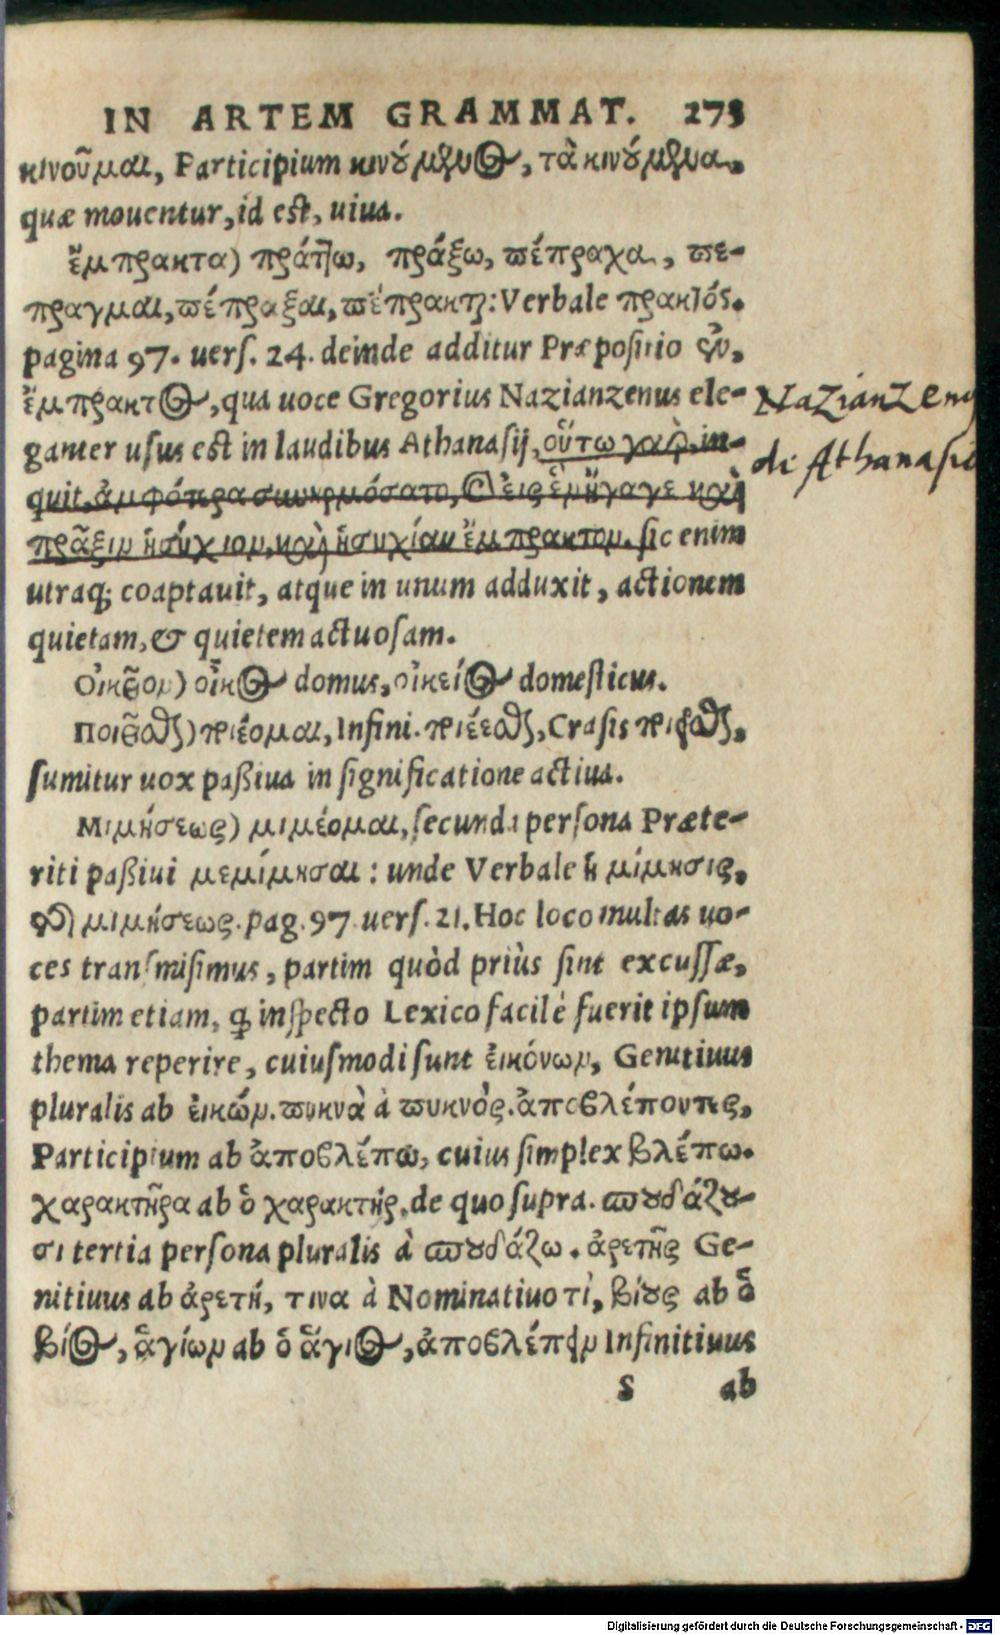 IN ARTEM GRAMMAT. 273
κινοῦμαι, Participium κινούμενος, τὰ κινούμενα.
quæ mouentur, id est, uiua.
ἔμπρακτα) πράττω, πράξω, πέπραχα, πέ-
πραγμαι, πέπραξαι, πέπρακται: Verbale πρακτός.
pagina 97. uers. 24. deinde additur Præpositio ἐν,
ἔμπρακτος, qua uoce Gregorius Nazianzenus ele-
ganter usus est in laudibus Athanasij, οὕτω γὰρ, in-
quit, ἀμφότερα συνηρμόσατο, καὶ εἰς ἓν ἤγαγε καὶ
πρᾶξιν ἡσύχιον, καὶ ἡσυχίαν ἔμπρακτον. sic enim
utraq; coaptauit, atque in unum adduxit, actionem
quietam, & quietem actuosam.
Οἰκεῖον) οἶκος domus, οἰκεῖος domesticus.
Ποιεῖσθαι) ποιέομαι, Infini. ποιέεσθαι, Crasis ποιεῖσθαι,
sumitur uox paßiua in significatione actiua.
Μιμήσεως) μιμέομαι, secunda persona Præte-
riti paßiui μεμίμησαι: unde Verbale ἡ μίμησις,
τῆς μιμήσεως. pag. 97 uers. 21. Hoc loco multas uo-
ces transmisimus, partim quòd priùs sint excussæ,
partim etiam, q̃ inspecto Lexico facilè fuerit ipsum
thema reperire, cuiusmodi sunt εἰκόνων, Genitiuus
pluralis ab εἰκών. πυκνὰ à πυκνὸς. ἀποβλέποντες,
Participium ab ἀποβλέπω, cuius simplex βλέπω.
χαρακτῆρα ab ὁ χαρακτήρ, de quo supra. σπουδάζου-
σι tertia persona pluralis à σπουδάζω. ἀρετῆς Ge-
nitiuus ab ἀρετή, τινα à Nominatiuo τὶ, βίους ab ὁ
βίος, ἁγίων ab ὁ ἅγιος, ἀποβλέπειν Infinitiuus
S ab
Nazianzenus
di Athanasio
Digitalisierung gefördert durch die Deutsche Forschungsgemeinschaft - DFG